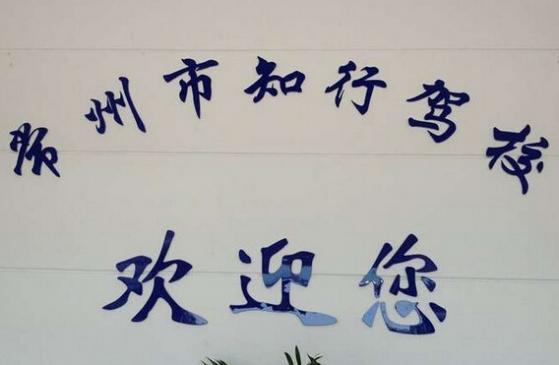 胶州市知行驾校
欢迎您